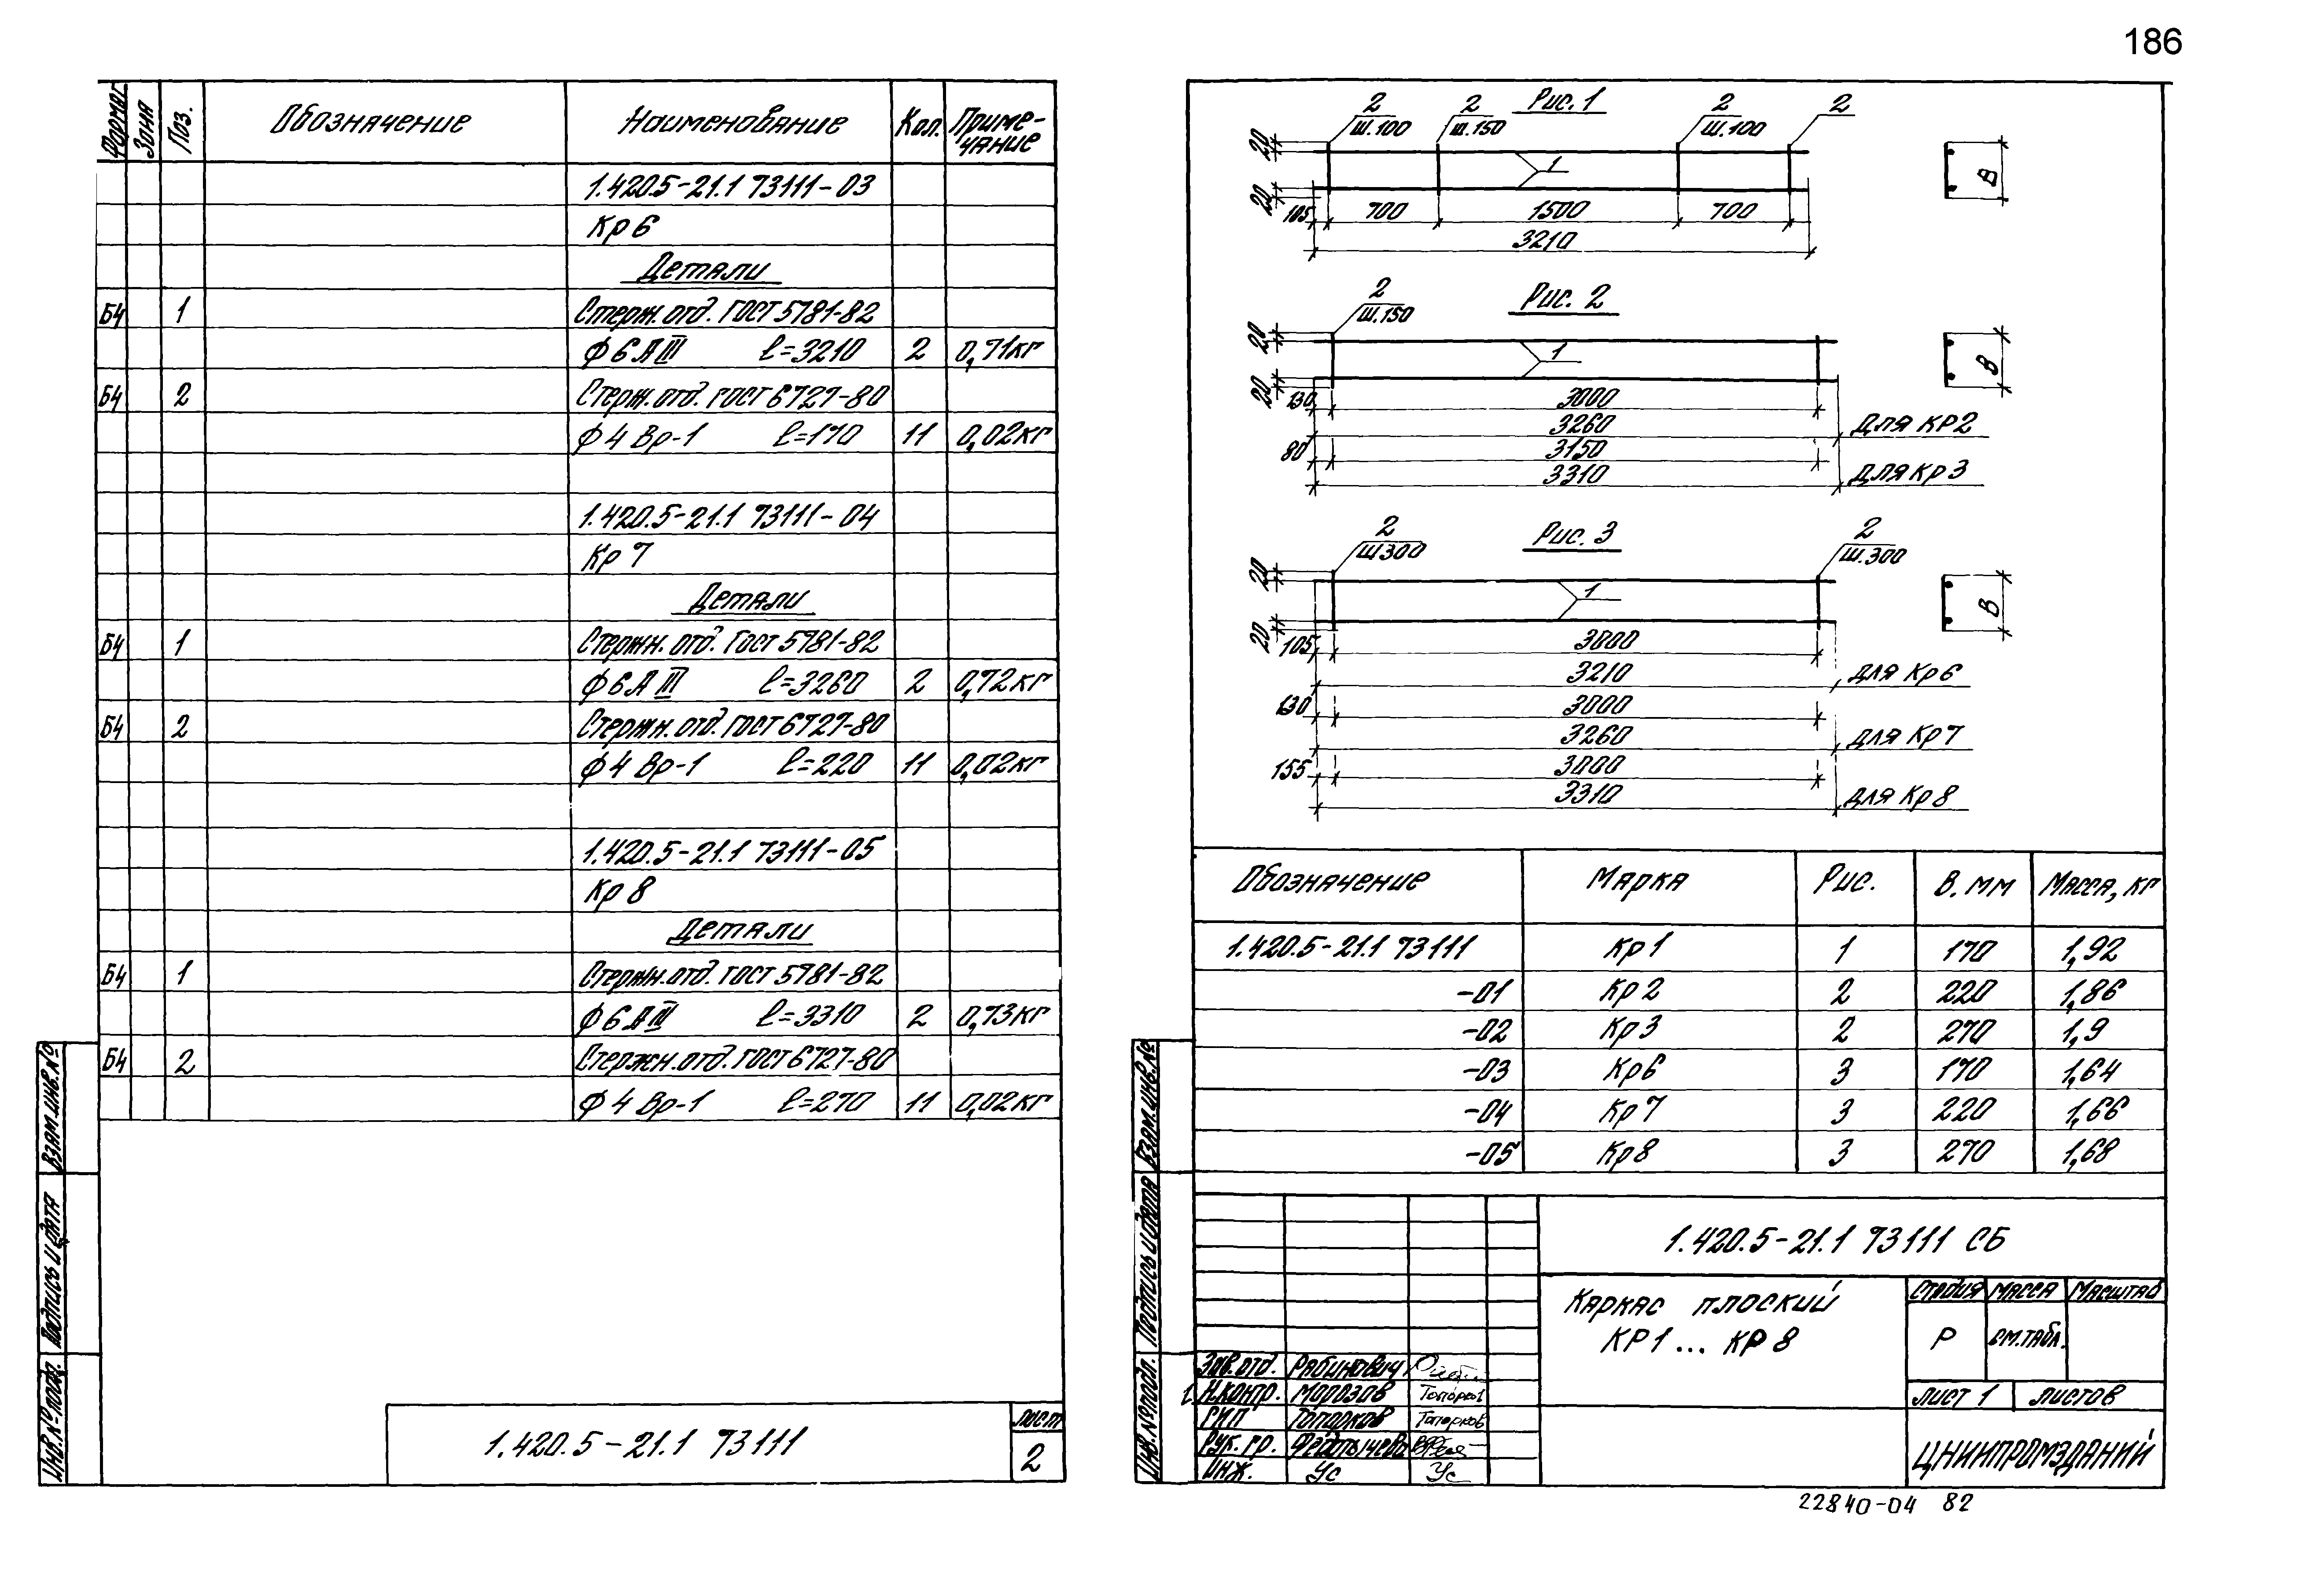 186
Формат Зона Поз. Обозначение Наименование Кол. Приме-
чание
1.420.5-21.1 73111-03
Кр 6
Детали
Б4 1 Стерж. отд. ГОСТ 5781-82
Ф 6 А III ℓ=3210 2 0,71кг
Б4 2 Стерж. отд. ГОСТ 6727-80
Ф 4 Вр-1 ℓ=170 11 0,02кг
1.420.5-21.1 73111-04
Кр 7
Детали
Б4 1 Стержн. отд. ГОСТ 5781-82
Ф 6 А III ℓ=3260 2 0,72кг
Б4 2 Стержн. отд. ГОСТ 6727-80
Ф 4 Вр-1 ℓ=220 11 0,02кг
1.420.5-21.1 73111-05
Кр 8
Детали
Б4 1 Стержн. отд. ГОСТ 5781-82
Ф 6 А III ℓ=3310 2 0,73кг
Б4 2 Стержн. отд. ГОСТ 6727-80
Ф 4 Вр-1 ℓ=270 11 0,02кг
Взам. инв. №
Подпись и дата
Инв. № подл.
1.420.5-21.1 73111
Лист
2
Рис. 1
2 2 2 2
Ш.100 Ш.150 Ш.100
20
1
В
20
105 700 1500 700
3210
Рис. 2
2
Ш.150
20
1
В
20
130 3000
3260 Для КР2
80 3150
3310 Для Кр 3
Рис. 3
2 2
Ш300 Ш.300
20
1
В
20
105 3000
3210 Для Кр 6
130 3000
3260 Для Кр 7
155 3000
3310 Для Кр 8
Обозначение Марка Рис. В. мм Масса, кг
1.420.5-21.1 73111 Кр 1 1 170 1,92
-01 Кр 2 2 220 1,86
-02 Кр 3 2 270 1,9
-03 Кр6 3 170 1,64
-04 Кр 7 3 220 1,66
-05 Кр 8 3 270 1,68
Взам. инв. №
Подпись и дата
Инв. № подл.
1.420.5-21.1 73111 СБ
Каркас плоский
КР 1 ... КР 8
Стадия Масса Масштаб
Р См. табл.
Лист 1 Листов
ЦНИИпромзданий
Зав. отд. Рабинович
Н.контр. Морозов Топорков
ГИП Топорков Топорков
Рук. гр.
Инж. Ус Ус
22840-04 82